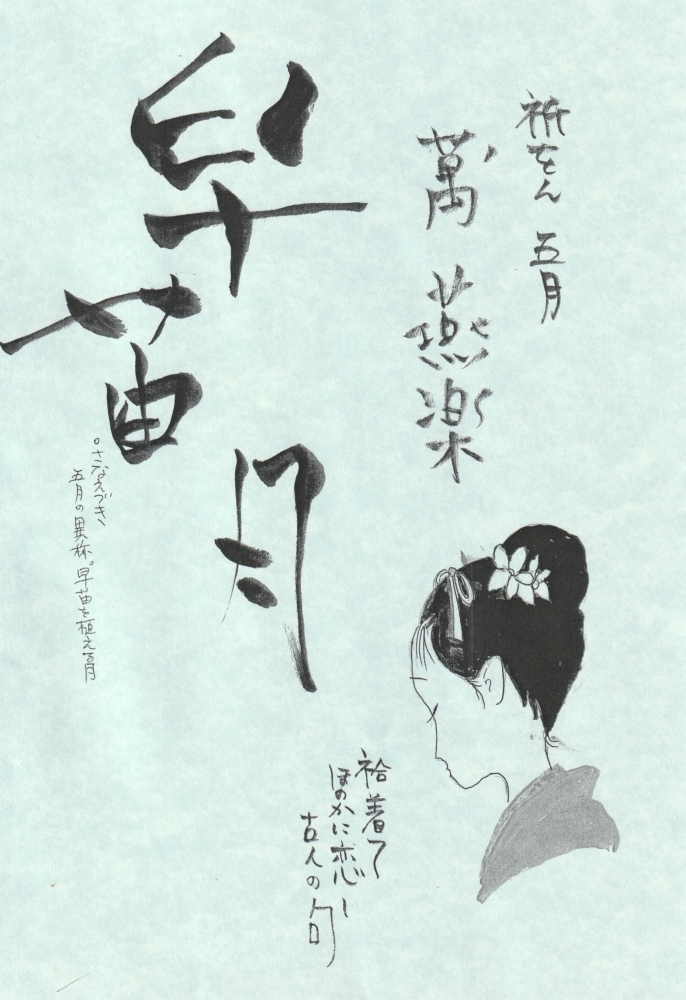 祇をん 五月
萬 燕楽
早苗月
。さなえづき、
五月の異称。早苗を植える月
袷着て
ほのかに恋し
古人の句